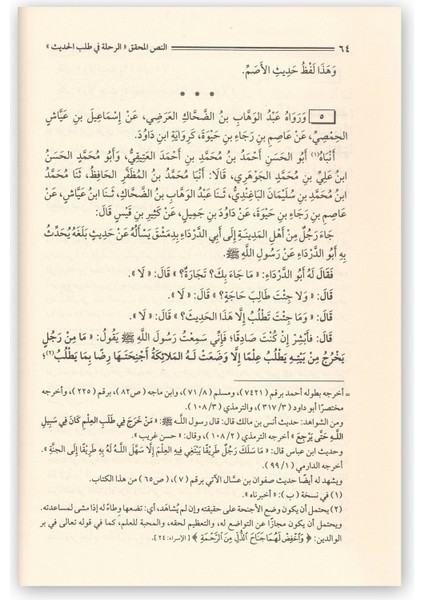 ٦٤ النص المحقق « الرحلة في طلب الحديث »
وَهَذَا لَفْظُ حَدِيثِ الأَصَمِّ.
* * *
٥ وَرَوَاهُ عَبْدُ الوَهَّابِ بنُ الضَّحَّاكِ العَرَضِي، عَنْ إِسْمَاعِيلَ بنِ عَيَّاشٍ
الحِمْصِيِّ، عَنْ عَاصِمِ بنِ رَجَاءِ بنِ حَيْوَةَ، كَرِوَايَةِ ابنِ دَاوُدَ.
أَنْبَاهُ(١) أَبُو الحَسَنِ أَحْمَدُ بنُ مُحَمَّدِ بنِ أَحْمَدَ العَتِيقِيُّ، وَأَبُو مُحَمَّدٍ الحَسَنُ
ابنُ عَلِيِّ بنِ مُحَمَّدٍ الجَوْهَرِي، قَالَا: أَنْبَا مُحَمَّدُ بنُ المُظَفَّرِ الحَافِظُ، ثَنَا مُحَمَّدُ
ابنُ مُحَمَّدِ بنِ سُلَيْمَانَ البَاغَنْدِيُّ، ثَنَا عَبْدُ الوَهَّابِ بنُ الضَّحَّاكِ، ثَنَا ابنُ عَيَّاشٍ، عَنْ
عَاصِمِ بنِ رَجَاءِ بنِ حَيْوَةَ، عَنْ دَاوُدَ بنِ جَمِيلٍ، عَنْ كَثِيرِ بنِ قَيْسٍ قَالَ:
جَاءَ رَجُلٌ مِنْ أَهْلِ المَدِينَةِ إِلَى أَبِي الدَّرْدَاءِ بِدِمَشْقَ يَسْأَلُهُ عَنْ حَدِيثٍ بَلَغَهُ يُحَدِّثُ
بِهِ أَبُو الدَّرْدَاءِ عَنْ رَسُولِ اللَّهِ ﷺ.
فَقَالَ لَهُ أَبُو الدَّرْدَاءِ: « مَا جَاءَ بِكَ؟ تِجَارَةٌ؟ » قَالَ: « لَا ».
قَالَ: « وَلَا جِئْتَ طَالِبَ حَاجَةٍ؟ » قَالَ: « لَا ».
قَالَ: « وَمَا جِئْتَ تَطْلُبُ إِلَّا هَذَا الحَدِيثَ؟ » قَالَ: « لَا ».
قَالَ: فَأَبْشِرْ إِنْ كُنْتَ صَادِقًا؛ فَإِنِّي سَمِعْتُ رَسُولَ اللَّهِ ﷺ يَقُولُ: « مَا مِنْ رَجُلٍ
يَخْرُجُ مِنْ بَيْتِهِ يَطْلُبُ عِلْمًا إِلَّا وَضَعَتْ لَهُ المَلَائِكَةُ أَجْنِحَتَهَا رِضًا بِمَا يَطْلُبُ(٢)؛
= أخرجه بطوله أحمد برقم ( ٧٤٢١ )، ومسلم ( ٨/ ٧١ )، وابن ماجه ( ص٨٢ )، برقم ( ٢٢٥ )، وأخرجه
مختصرًا أبو داود ( ٣/ ٣١٧ )، والترمذي ( ٣/ ١٠٨ ).
ومن الشواهد: حديث أنس بن مالك قال: قال رسول اللَّه ﷺ: « مَنْ خَرَجَ فِي طَلَبِ العِلْمِ كَانَ فِي سَبِيلِ
اللَّهِ حَتَّى يَرْجِعَ » أخرجه الترمذي ( ٢/ ١٠٨ )، وقال: « حسن غريب ».
وحديث ابن عباس قال: « مَا سَلَكَ رَجُلٌ طَرِيقًا يَبْتَغِي فِيهِ العِلْمَ إِلَّا سَهَّلَ اللَّهُ لَهُ بِهِ طَرِيقًا إِلَى الجَنَّةِ ».
أخرجه الدارمي ( ١/ ٩٩ ).
ويشهد له أيضًا حديث صفوان بن عسَّال الآتي برقم ( ٧ )، ( ص٦٥ ) من هذا الكتاب.
(١) في نسخة ( ب ): « أخبرناه ».
(٢) يحتمل أن يكون وضع الأجنحة على حقيقته وإن لم يُشَاهَد، أي: تضعها وطاءً له إذا مشى لمساعدته.
ويحتمل أن يكون مجازًا عن التواضع له، والتعظيم لحقه، والمحبة للعلم، كما في قوله تعالى في بر
الوالدين: ﴿ وَٱخۡفِضۡ لَهُمَا جَنَاحَ ٱلذُّلِّ مِنَ ٱلرَّحۡمَةِ ﴾ [الإسراء: ٢٤].